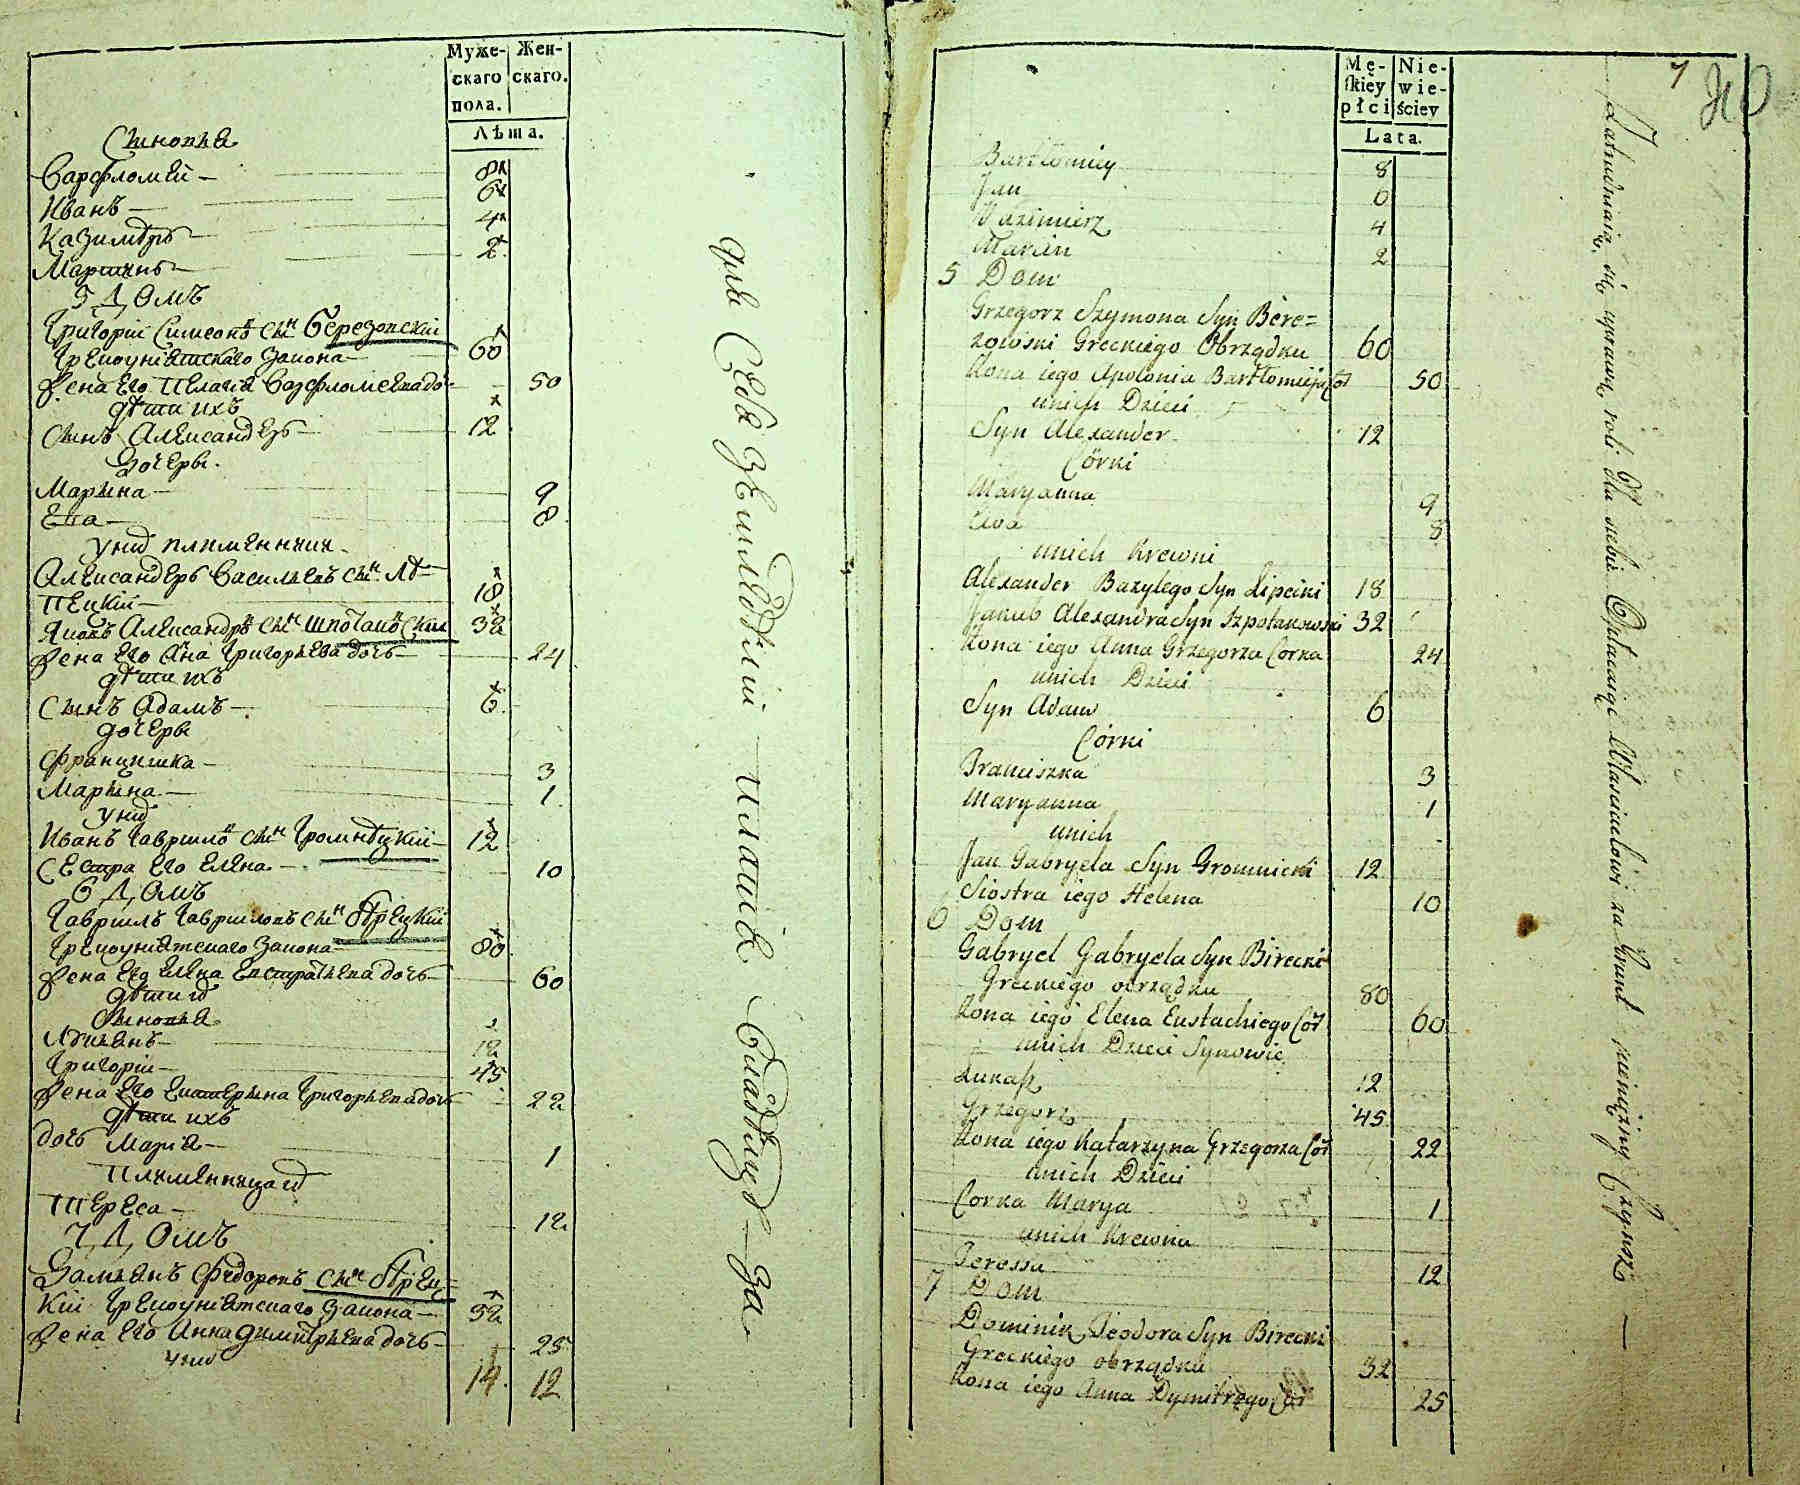 Муже-
скаго
пола.
Жен-
скаго.
Лѣта.
Сыновья
Варфломѣй — 8
Иванъ — 6
Казимѣръ — 4
Мартинъ — 2
5 Домъ
Григорій Симеонъ сынъ Березовскій
Грекоуніятскаго Закона — 60
Жена Его Пелагія Варфломеева до: 50
дѣти ихъ
Сынъ Александеръ — 12
Дочеры.
Марына — 9
Ева — 8
унихъ племенники
Александеръ Васильевъ сынъ Лѣ=
пецкій — 18
Яковъ Александръ сынъ Шпотаковскій 32
Жена Его Анна Григорьева дочь — 24
дѣти ихъ
Сынъ Адамъ — 6
дочеры
Францишка — 3
Марына — 1
унихъ
Иванъ Гаврило сынъ Громнѣцкій — 12
Сестра Его Елена — 10
6 Домъ
Гаврилъ Гавриловъ сынъ Бѣрецкій
Грекоуніятскаго Закона — 80
Жена Его Елена Евстратьева дочь — 60
дѣти ихъ
Сыновья
Лукьянъ — 12
Григорій — 45
Жена Его Екатерына Григорьева дочь 22
дѣти ихъ
дочь Марія — 1
Племенница ихъ
Тереса — 12
7 Домъ
Замьянъ Федоровъ сынъ Бѣрец=
кій Грекоуніятскаго Закона — 32
Жена Его Анна Димитрьева дочь — 25
унихъ
14. 12
для Себя Земледѣлій платія Владѣлцу За
Mę-
ſkiey
płci
Nie-
wie-
ściey
Lata.
7
Bartłomiey 8
Jan 6
Kazimierz 4
Marcin 2
5 Dom
Grzegorz Szymona Syn Bere=
zowski Greckiego Obrządku 60
Żona iego Apolonia Bartłomieja Cór 50
unich Dzieci
Syn Alexander 12
Córki
Maryanna 9
Ewa 8
unich Krewni
Alexander Bazylego Syn Lipecki 18
Jakub Alexandra Syn Szpotakowski 32
Żona iego Anna Grzegorza Corka 24
unich Dzieci
Syn Adam 6
Córki
Franciszka 3
Maryanna 1
unich
Jan Gabryela Syn Gromnicki 12
Siostra iego Helena 10
6 Dom
Gabryel Gabryela Syn Birecki
Greckiego obrządku 80
Żona iego Elena Eustachiego Cór 60
unich Dzieci Synowie
Łukasz 12
Grzegorz 45
Żona iego Katarzyna Grzegorza Cór 22
unich Dzieci
Corka Marya 1
unich Krewna
Teressa 12
7 Dom
Dominik Teodora Syn Birecki
Greckiego obrządku 32
Żona iego Anna Dymitrego Cór 25
Zatrudniaią się uprawą roli dla siebie Opłacaiąc Właścicielowi za Grunt pieniężny Czynsz —